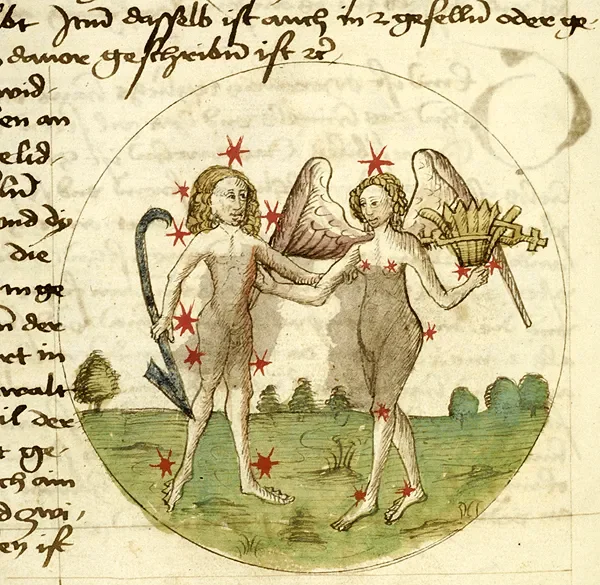 bt Itm dasselb ist auch in 2 geselln oder ge-
dauor geschribn ist
wid-
en an
elid-
lin
vnd dy
die
in ge
n der
rt in
walt
il der
t ge-
ch ain
d zwi-
en ist